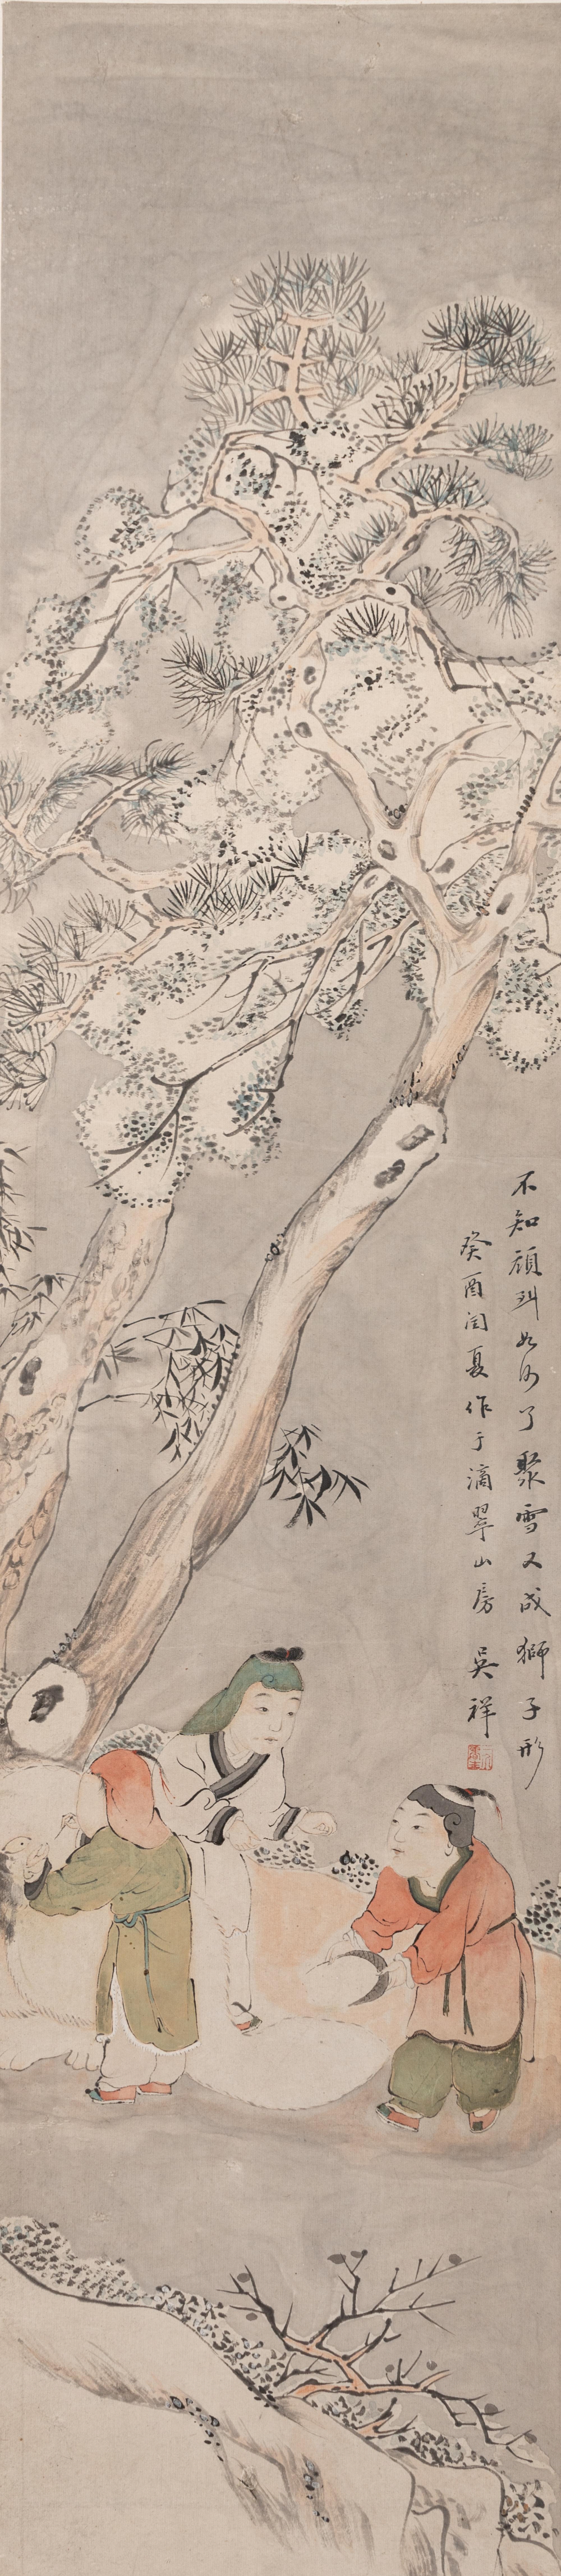 不知頑到如何了聚雪又成獅子形
癸酉閏夏作于滴翠山房 吳祥